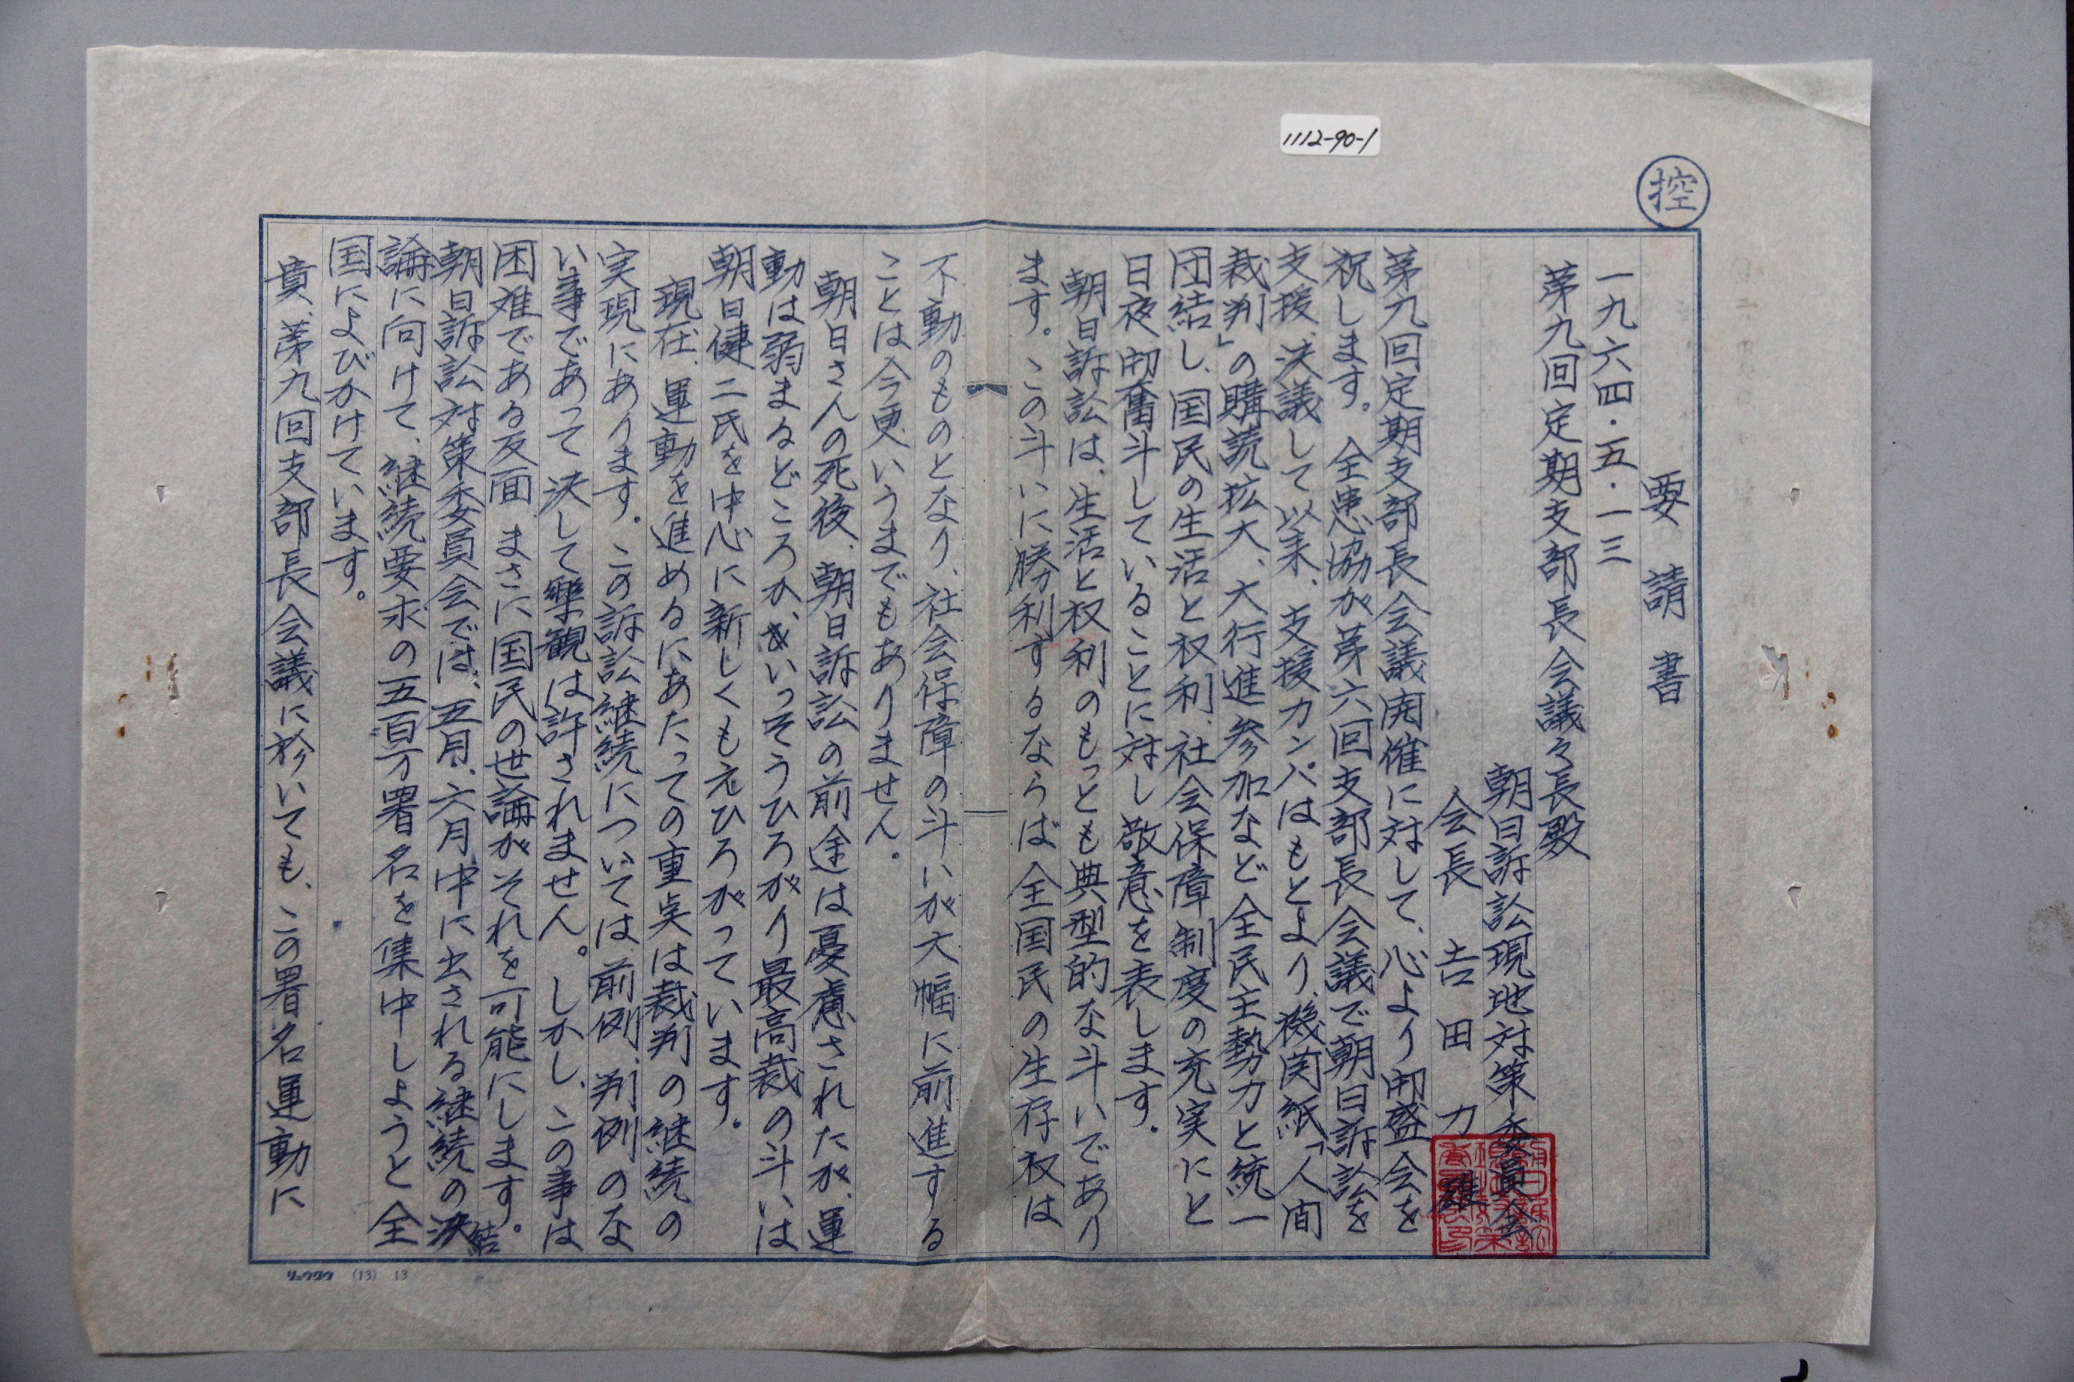 1112-90-1
控
要請書
一九六四・五・一三
第九回定期支部長会議々長殿
朝日訴訟現地対策委員会
会長 吉田力雄
第九回定期支部長会議開催に対して、心より開盛会を
祝します。全患協が第六回支部長会議で朝日訴訟を
支援、決議して以来、支援カンパはもとより、機関紙「人間
裁判」の購読拡大、大行進参加など全民主勢力と統一
団結し、国民の生活と权利、社会保障制度の充実にと
日夜開奮斗していることに対し敬意を表します。
朝日訴訟は、生活と权利のもっとも典型的な斗いであり
ます。この斗いに勝利するならば全国民の生存权は
不動のものとなり、社会保障の斗いが大幅に前進する
ことは今更いうまでもありません。
朝日さんの死後、朝日訴訟の前途は憂慮されたが、運
動は弱まるどころか、いっそうひろがり最高裁の斗いは
朝日健二氏を中心に新しくもえひろがっています。
現在、運動を進めるにあたっての重点は裁判の継続の
実現にあります。この訴訟継続については前例、判例のな
い事であって決して樂観は許されません。しかし、この事は
困难である反面、まさに国民の世論がそれを可能にします。
朝日訴訟対策委員会では、五月、六月中に出される継続の決
結
論に向けて、継続要求の五百万署名を集中しようと全
国によびかけています。
貴、第九回支部長会議に於いても、この署名運動に
リュウグウ (13) 13